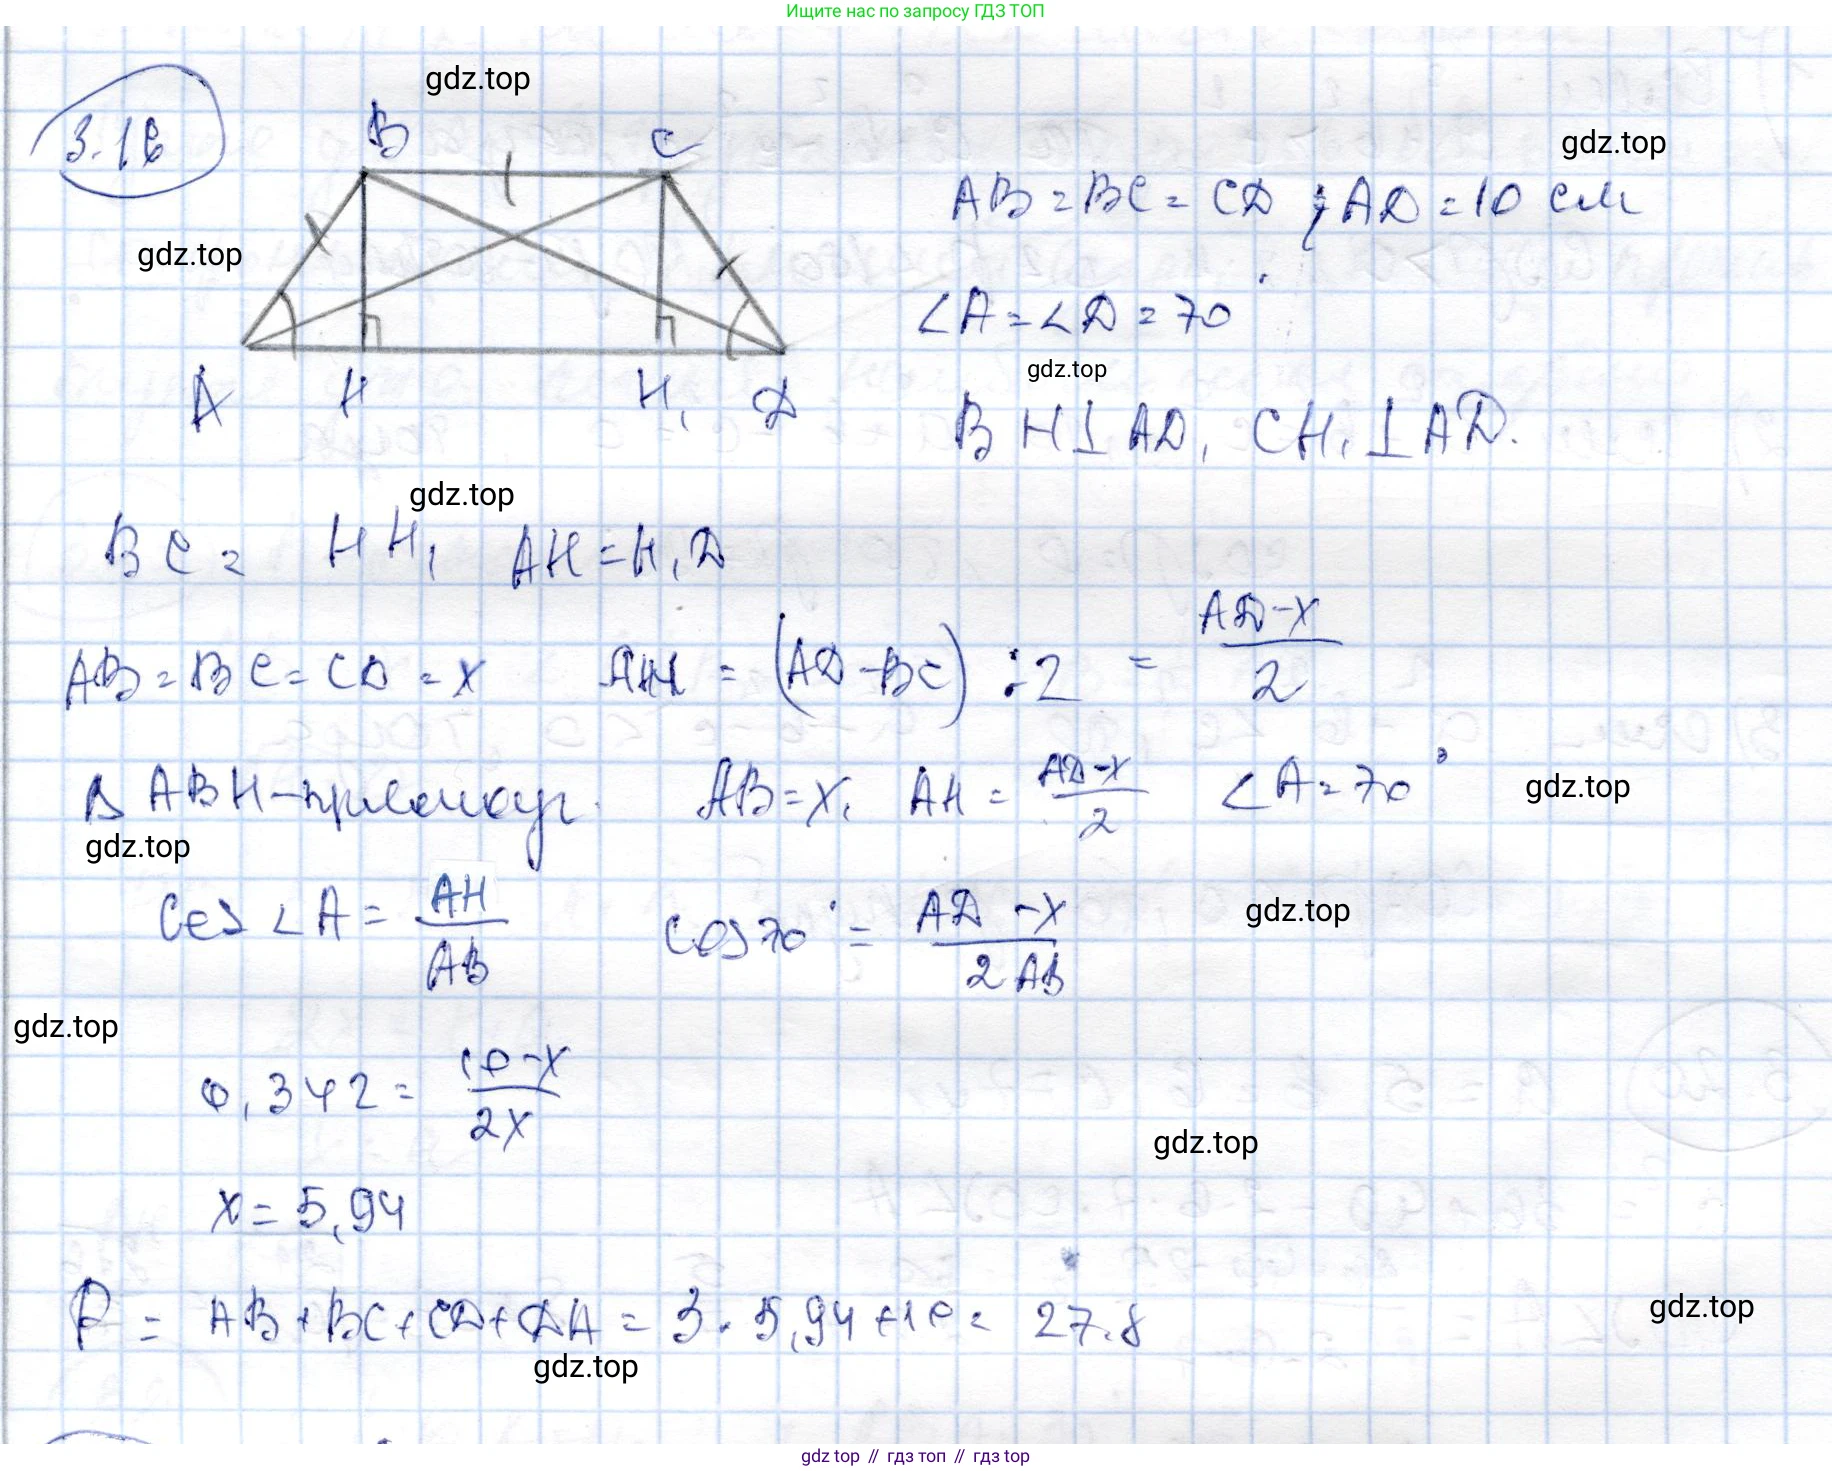 Ищите нас по запросу ГДЗ ТОП
gdz.top
3.16
B C
gdz.top
AB = BC = CD ; AD = 10 см
gdz.top
∠A = ∠D = 70°
gdz.top
A H H₁ D
BH ⊥ AD, CH₁ ⊥ AD.
gdz.top
BC = HH₁ AH = H₁D
AB = BC = CD = x AH = (AD - BC) : 2 = \frac{AD - x}{2}
В ABH - прямоуг. AB = x, AH = \frac{AD - x}{2} ∠A = 70°
gdz.top
gdz.top
cos ∠A = \frac{AH}{AB} cos 70° = \frac{AD - x}{2AB}
gdz.top
gdz.top
0,342 = \frac{10 - x}{2x}
gdz.top
x = 5,94
P = AB + BC + CD + DA = 3 · 5,94 + 10 = 27.8
gdz.top
gdz.top
gdz top // гдз топ // гдз top